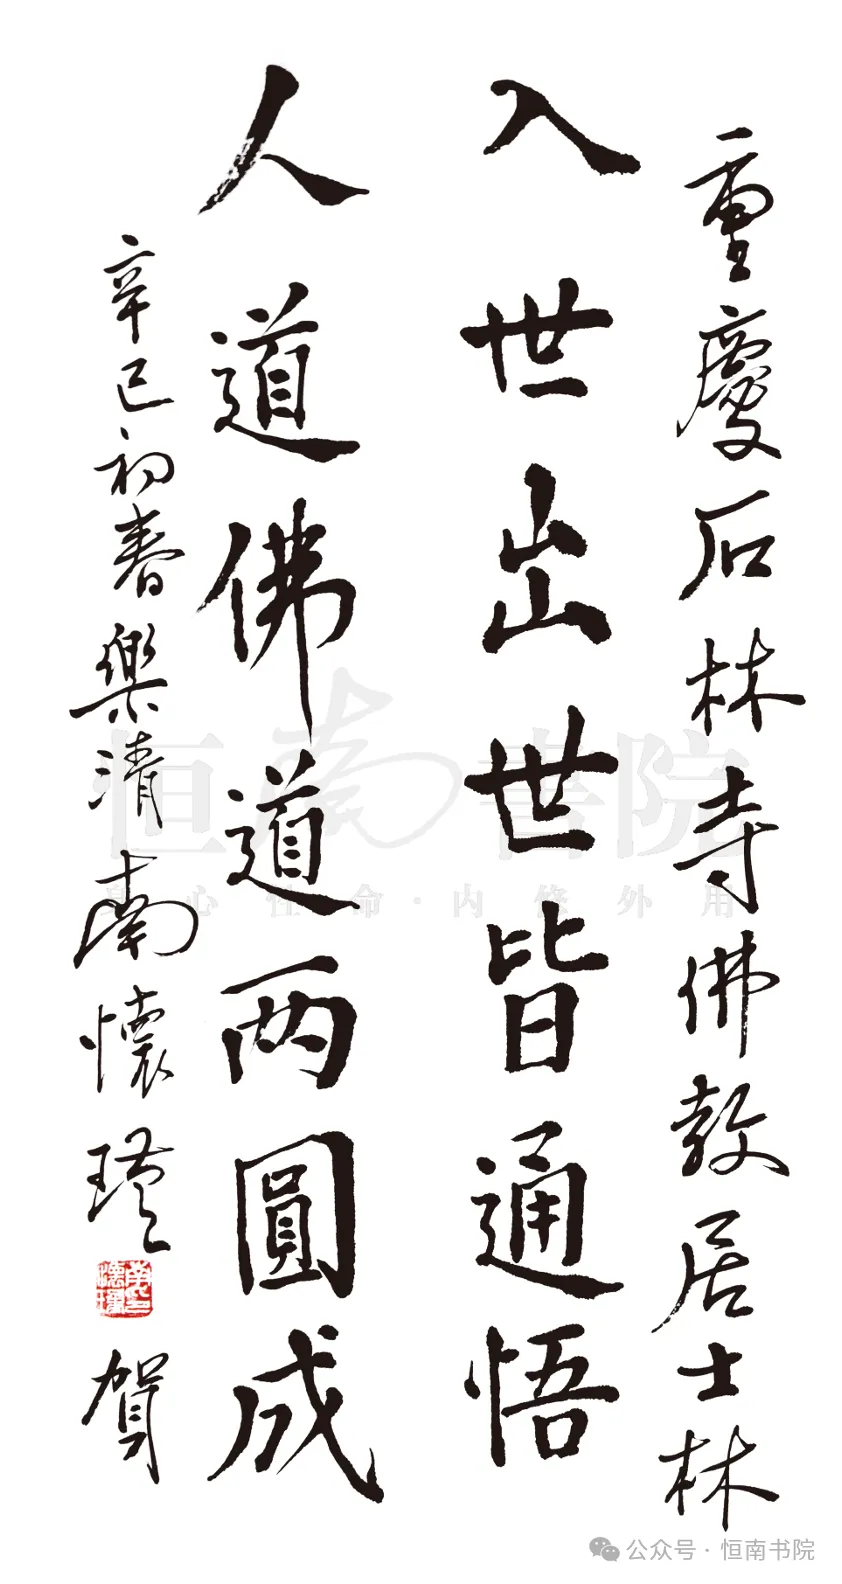 重慶石林寺佛教居士林
入世出世皆通悟
人道佛道两圓成
辛巳初春樂清南懷瑾
南懷瑾印
賀
恒南書院
身心性命·内修外用
公众号·恒南书院